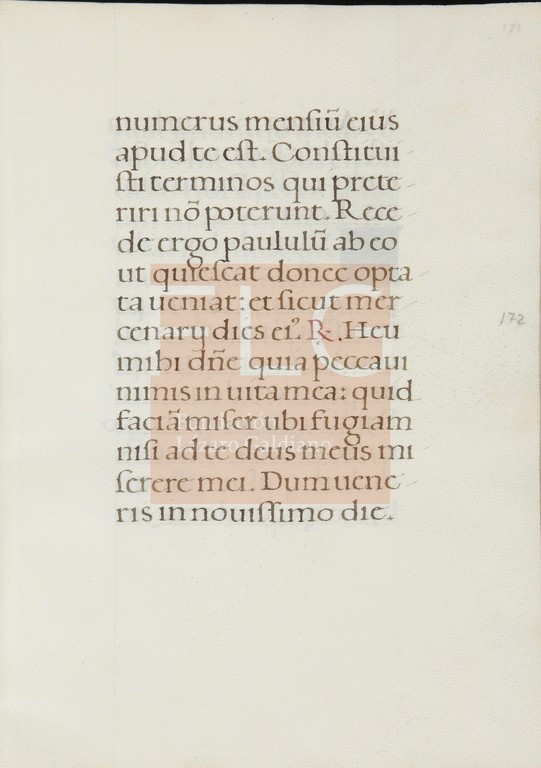 171
numerus mensiū eius
apud te est. Constitui
sti terminos qui prete-
riri nō poterunt. Rece-
de ergo paululū ab eo
ut quiescat donec opta-
ta ueniat: et sicut mer-
cenarij dies eiꝰ R. Heu
mihi dñe quia peccaui
nimis in uita mea: quid
faciā miser ubi fugiam
nisi ad te deus meus mi
serere mei. Dum uene-
ris in nouissimo die.
172
FLG
Fundación
Lázaro Galdiano